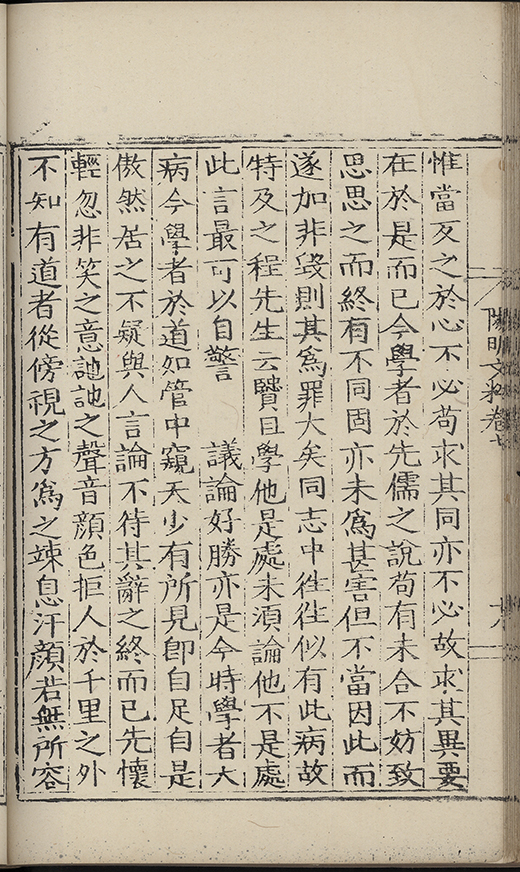 陽明文粹卷七
惟當反之於心不必苟求其同亦不必故求其異要
在於是而已今學者於先儒之說苟有未合不妨致
思思之而終有不同固亦未爲甚害但不當因此而
遂加非毀則其爲罪大矣同志中徃徃似有此病故
特及之程先生云賢且學他是處未須論他不是處
此言最可以自警 議論好勝亦是今時學者大
病今學者於道如管中窺天少有所見卽自足自是
傲然居之不疑與人言論不待其辭之終而已先懷
輕忽非笑之意訑訑之聲音顔色拒人於千里之外
不知有道者從傍視之方爲之竦息汗顔若無所容